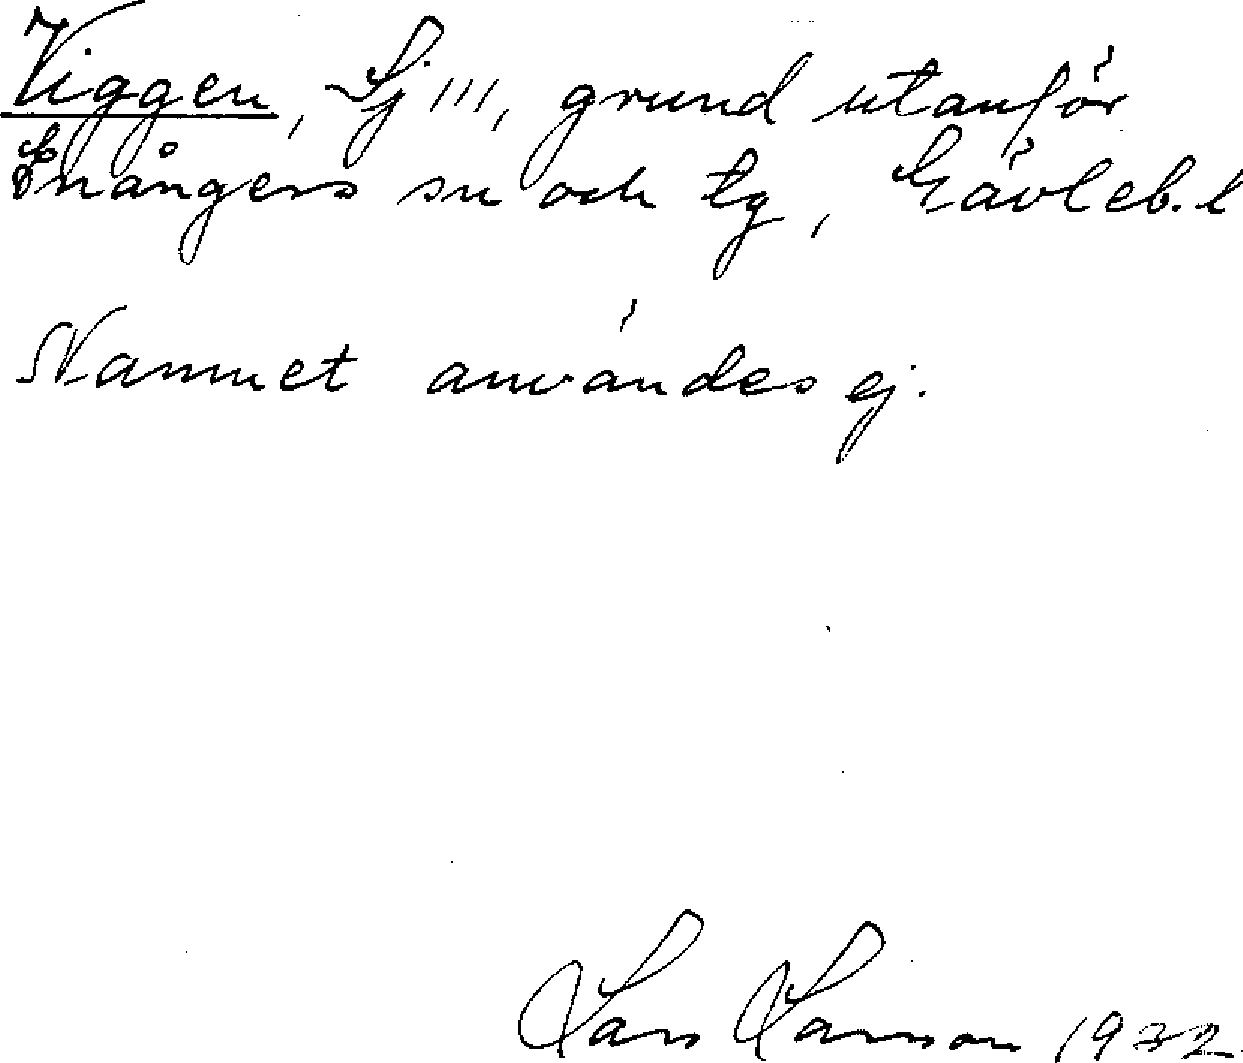 Viggen, Sj III, grund utanför
Enångers sn och tg, Gävleb. l
Namnet användes ej.
Lars Larsson 1932